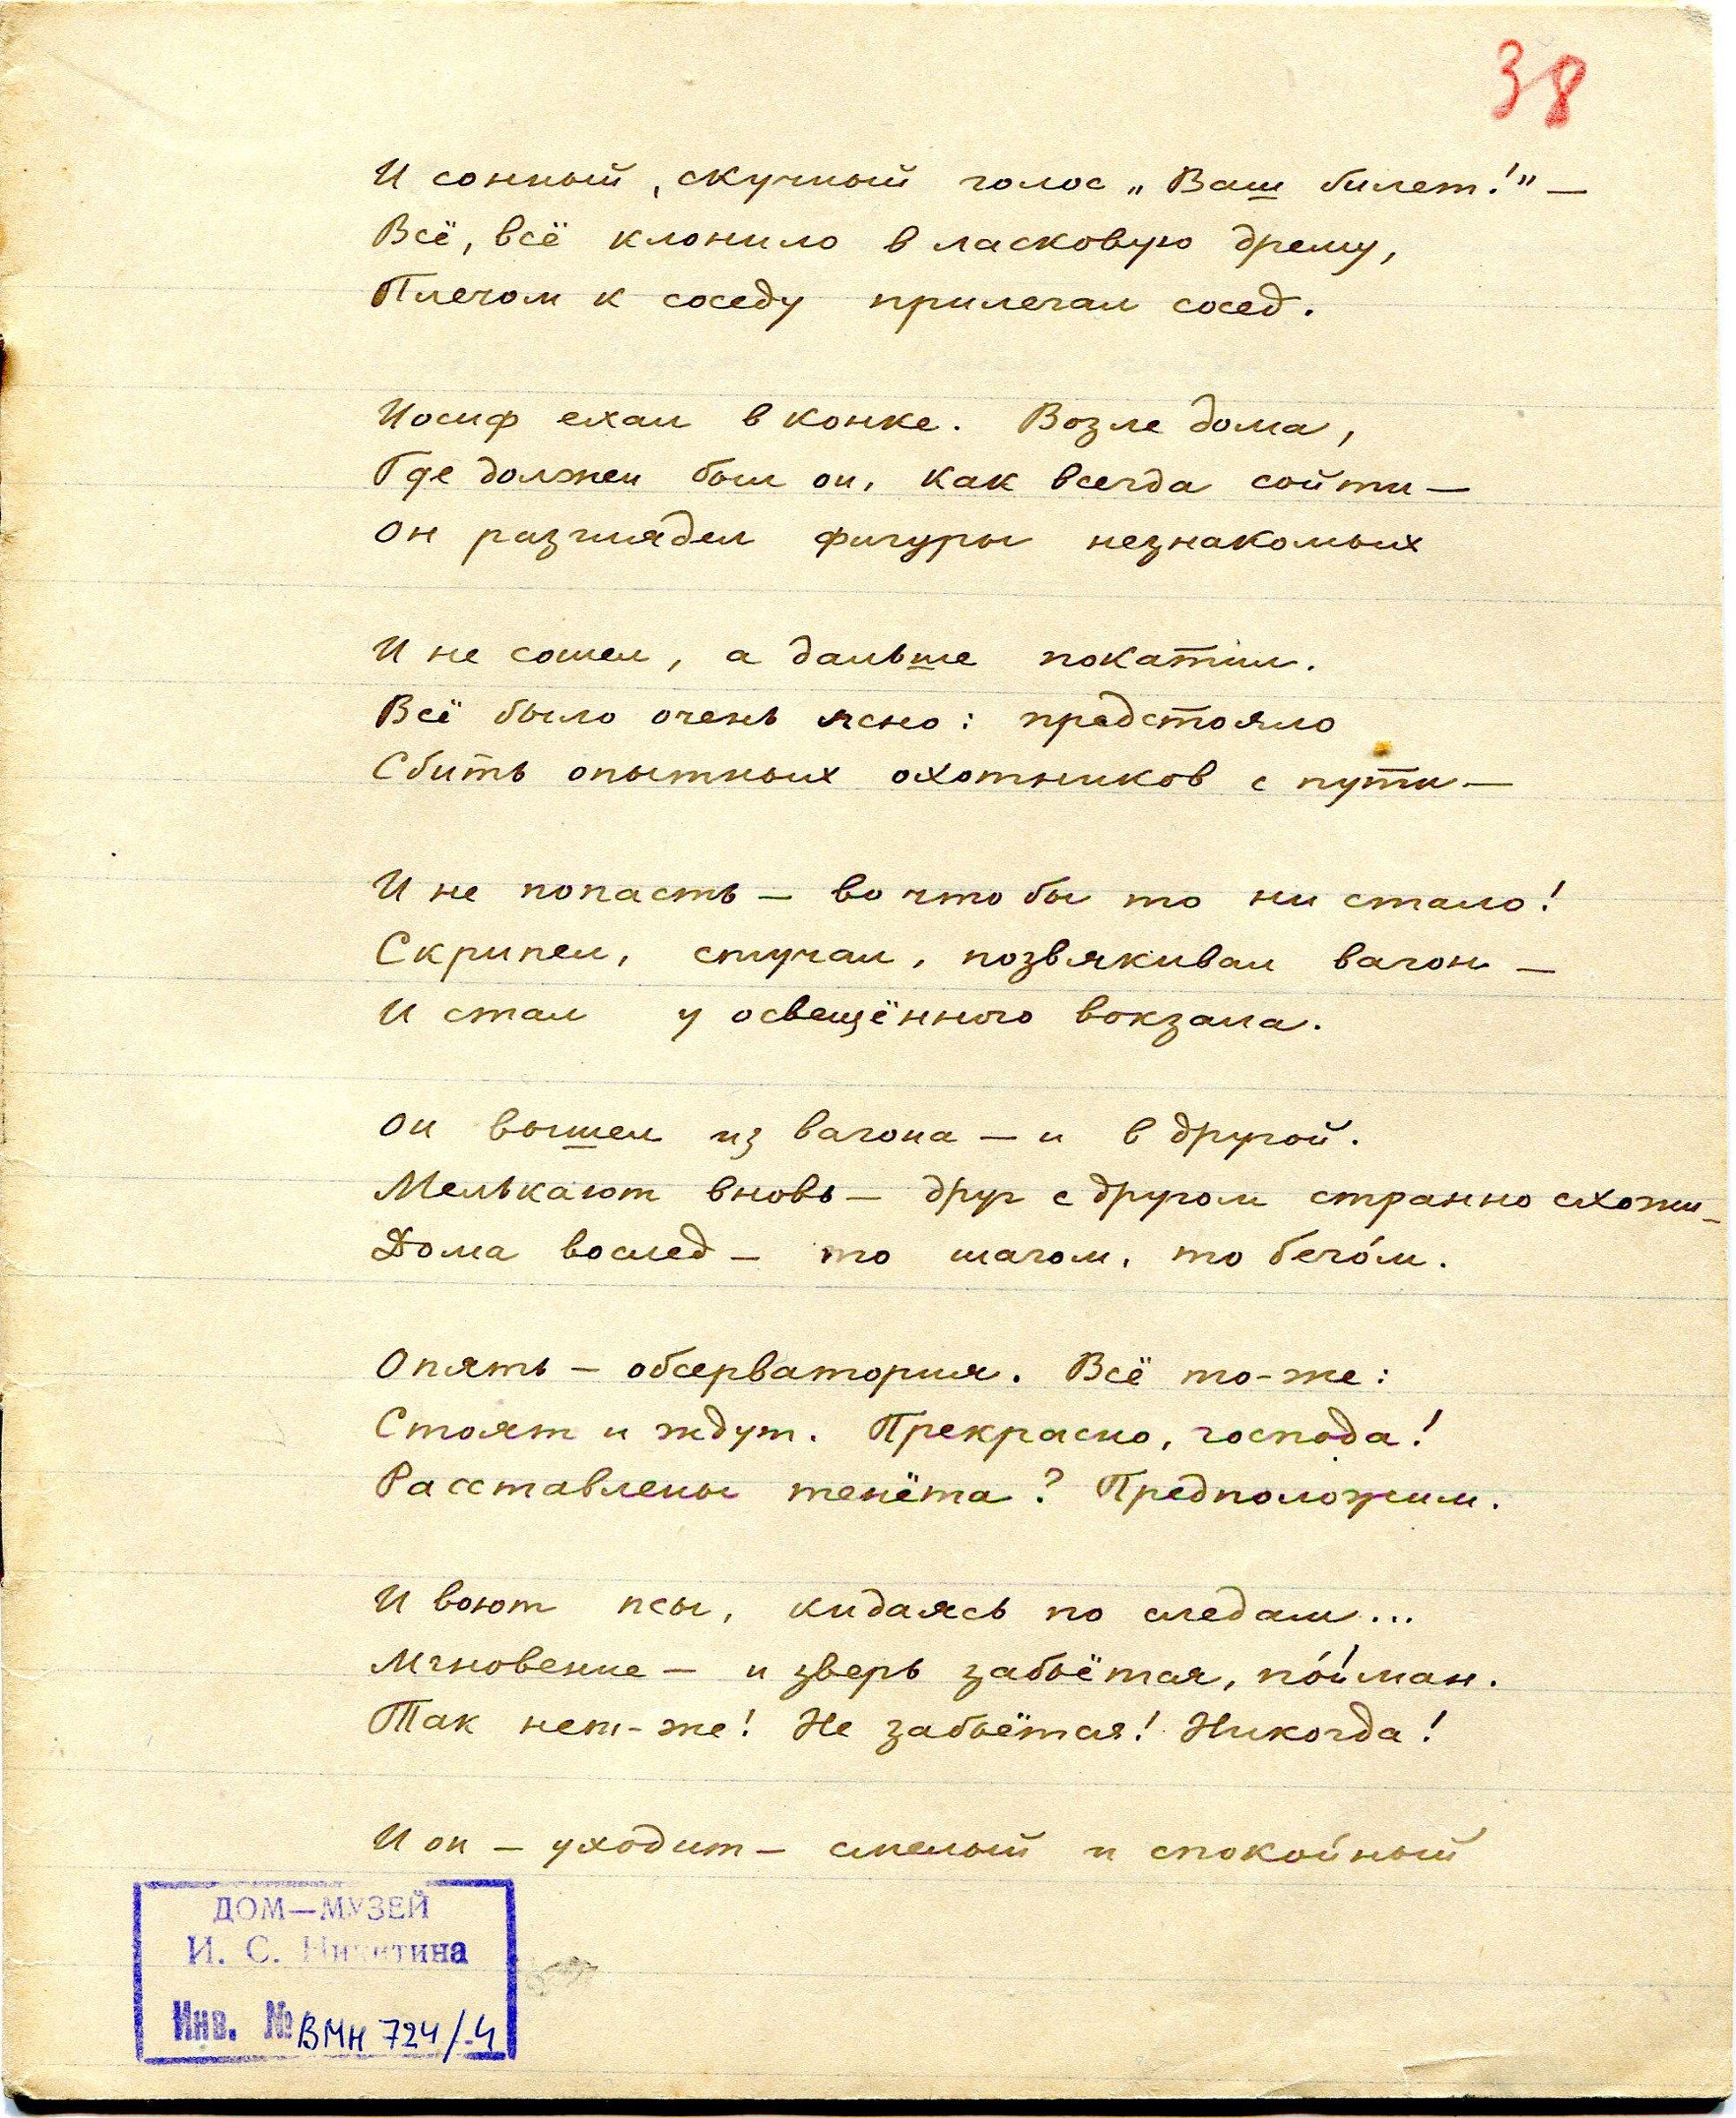 38
И сонный, скучный голос „Ваш билет!” —
Всё, всё клонило в ласковую дрему,
Плечом к соседу прилегал сосед.
Иосиф ехал в конке. Возле дома,
Где должен был он, как всегда сойти —
Он разглядел фигуры незнакомых
И не сошел, а дальше покатил.
Всё было очень ясно: предстояло
Сбить опытных охотников с пути —
И не попасть — во что бы то ни стало!
Скрипел, стучал, позвякивал вагон —
И стал у освещённого вокзала.
Он вышел из вагона — и в другой.
Мелькают вновь — друг с другом странно схожи —
Дома вослед — то шагом, то бего́м.
Опять — обсерватория. Всё то-же:
Стоят и ждут. Прекрасно, господа!
Расставлены тенёта? Предположим.
И воют псы, кидаясь по следам...
Мгновение — и зверь забьётся, по́йман.
Так нет-же! Не забьётся! Никогда!
И он — уходит — смелый и спокойный
ДОМ—МУЗЕЙ
И. С. Никитина
Инв. № ВМН 724/-4